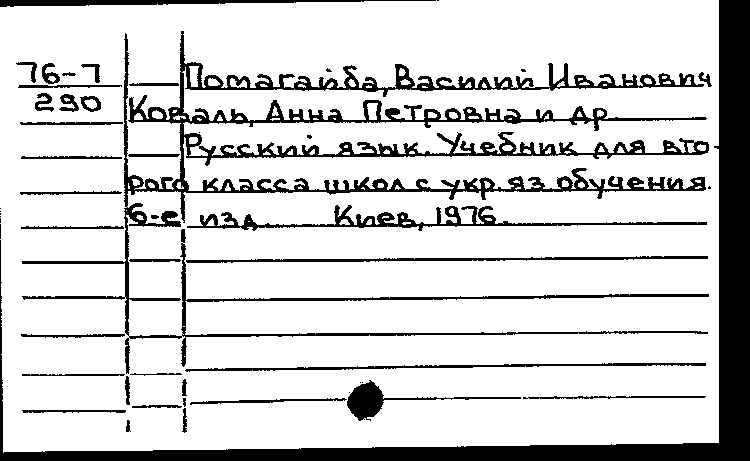 76-7 Помагайба, Василий Иванович
290 Коваль, Анна Петровна и др
Русский язык. Учебник для вто-
рого класса школ с укр. яз обучения.
6-е изд Киев, 1976.